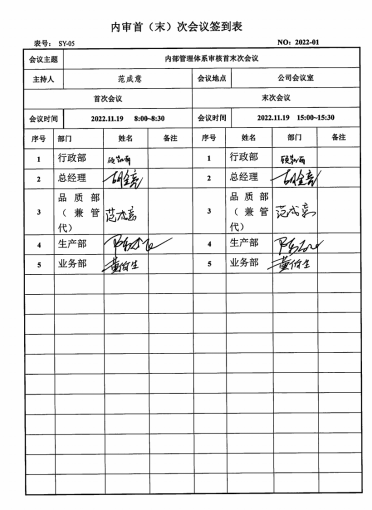 内审首（末）次会议签到表
表号： SY-05 NO：2022-01
会议主题 内部管理体系审核首末次会议
主持人 范成意 会议地点 公司会议室
首次会议 末次会议
会议时间 2022.11.19 8:00~8:30 会议时间 2022.11.19 15:00~15:30
序号 部门 姓名 备注 序号 姓名 部门 备注
1 行政部 1 行政部
2 总经理 2 总经理
3 品质部（兼管代） 范成意 3 品质部（兼管代） 范成意
4 生产部 4 生产部
5 业务部 5 业务部